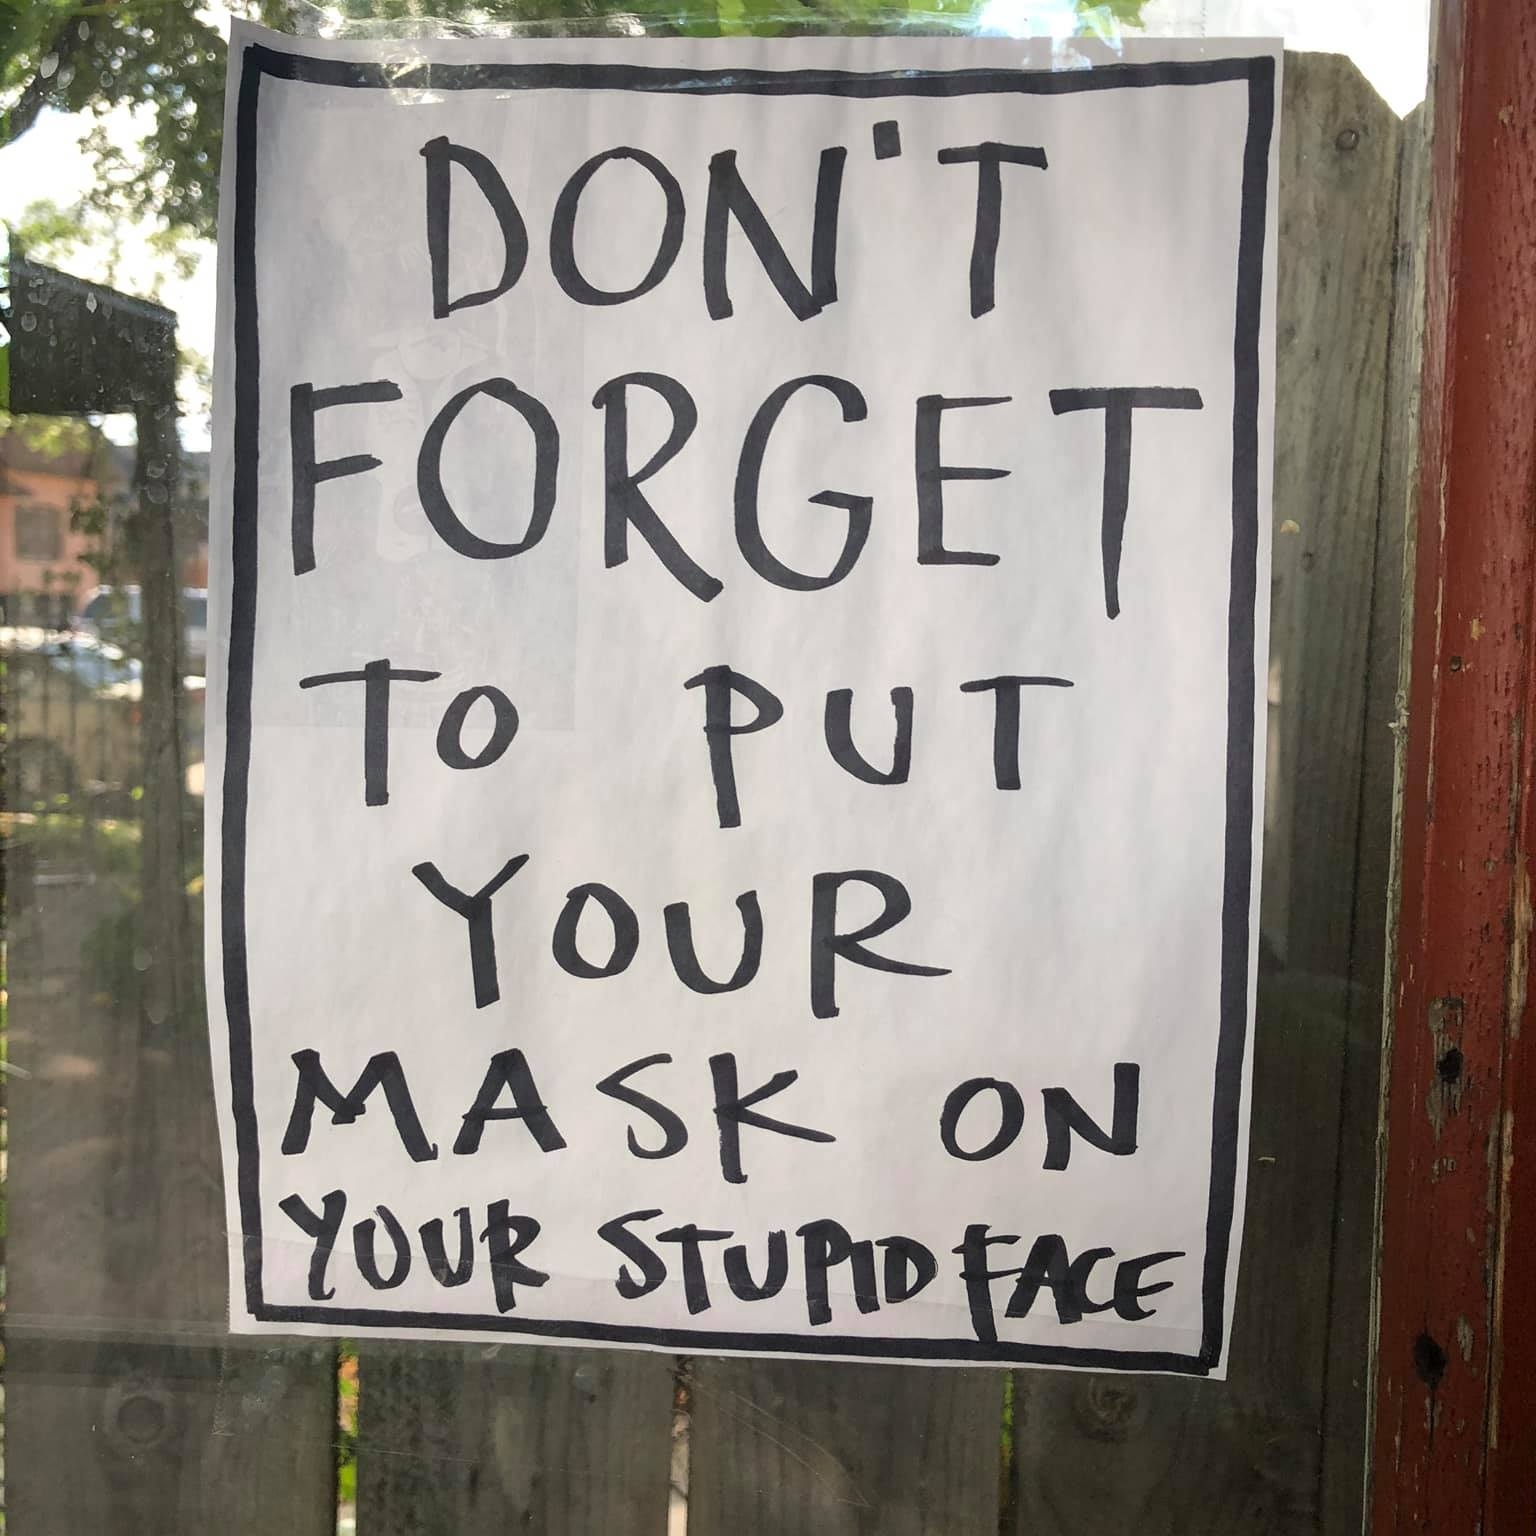 DON'T
FORGET
TO PUT
YOUR
MASK ON
YOUR STUPID FACE